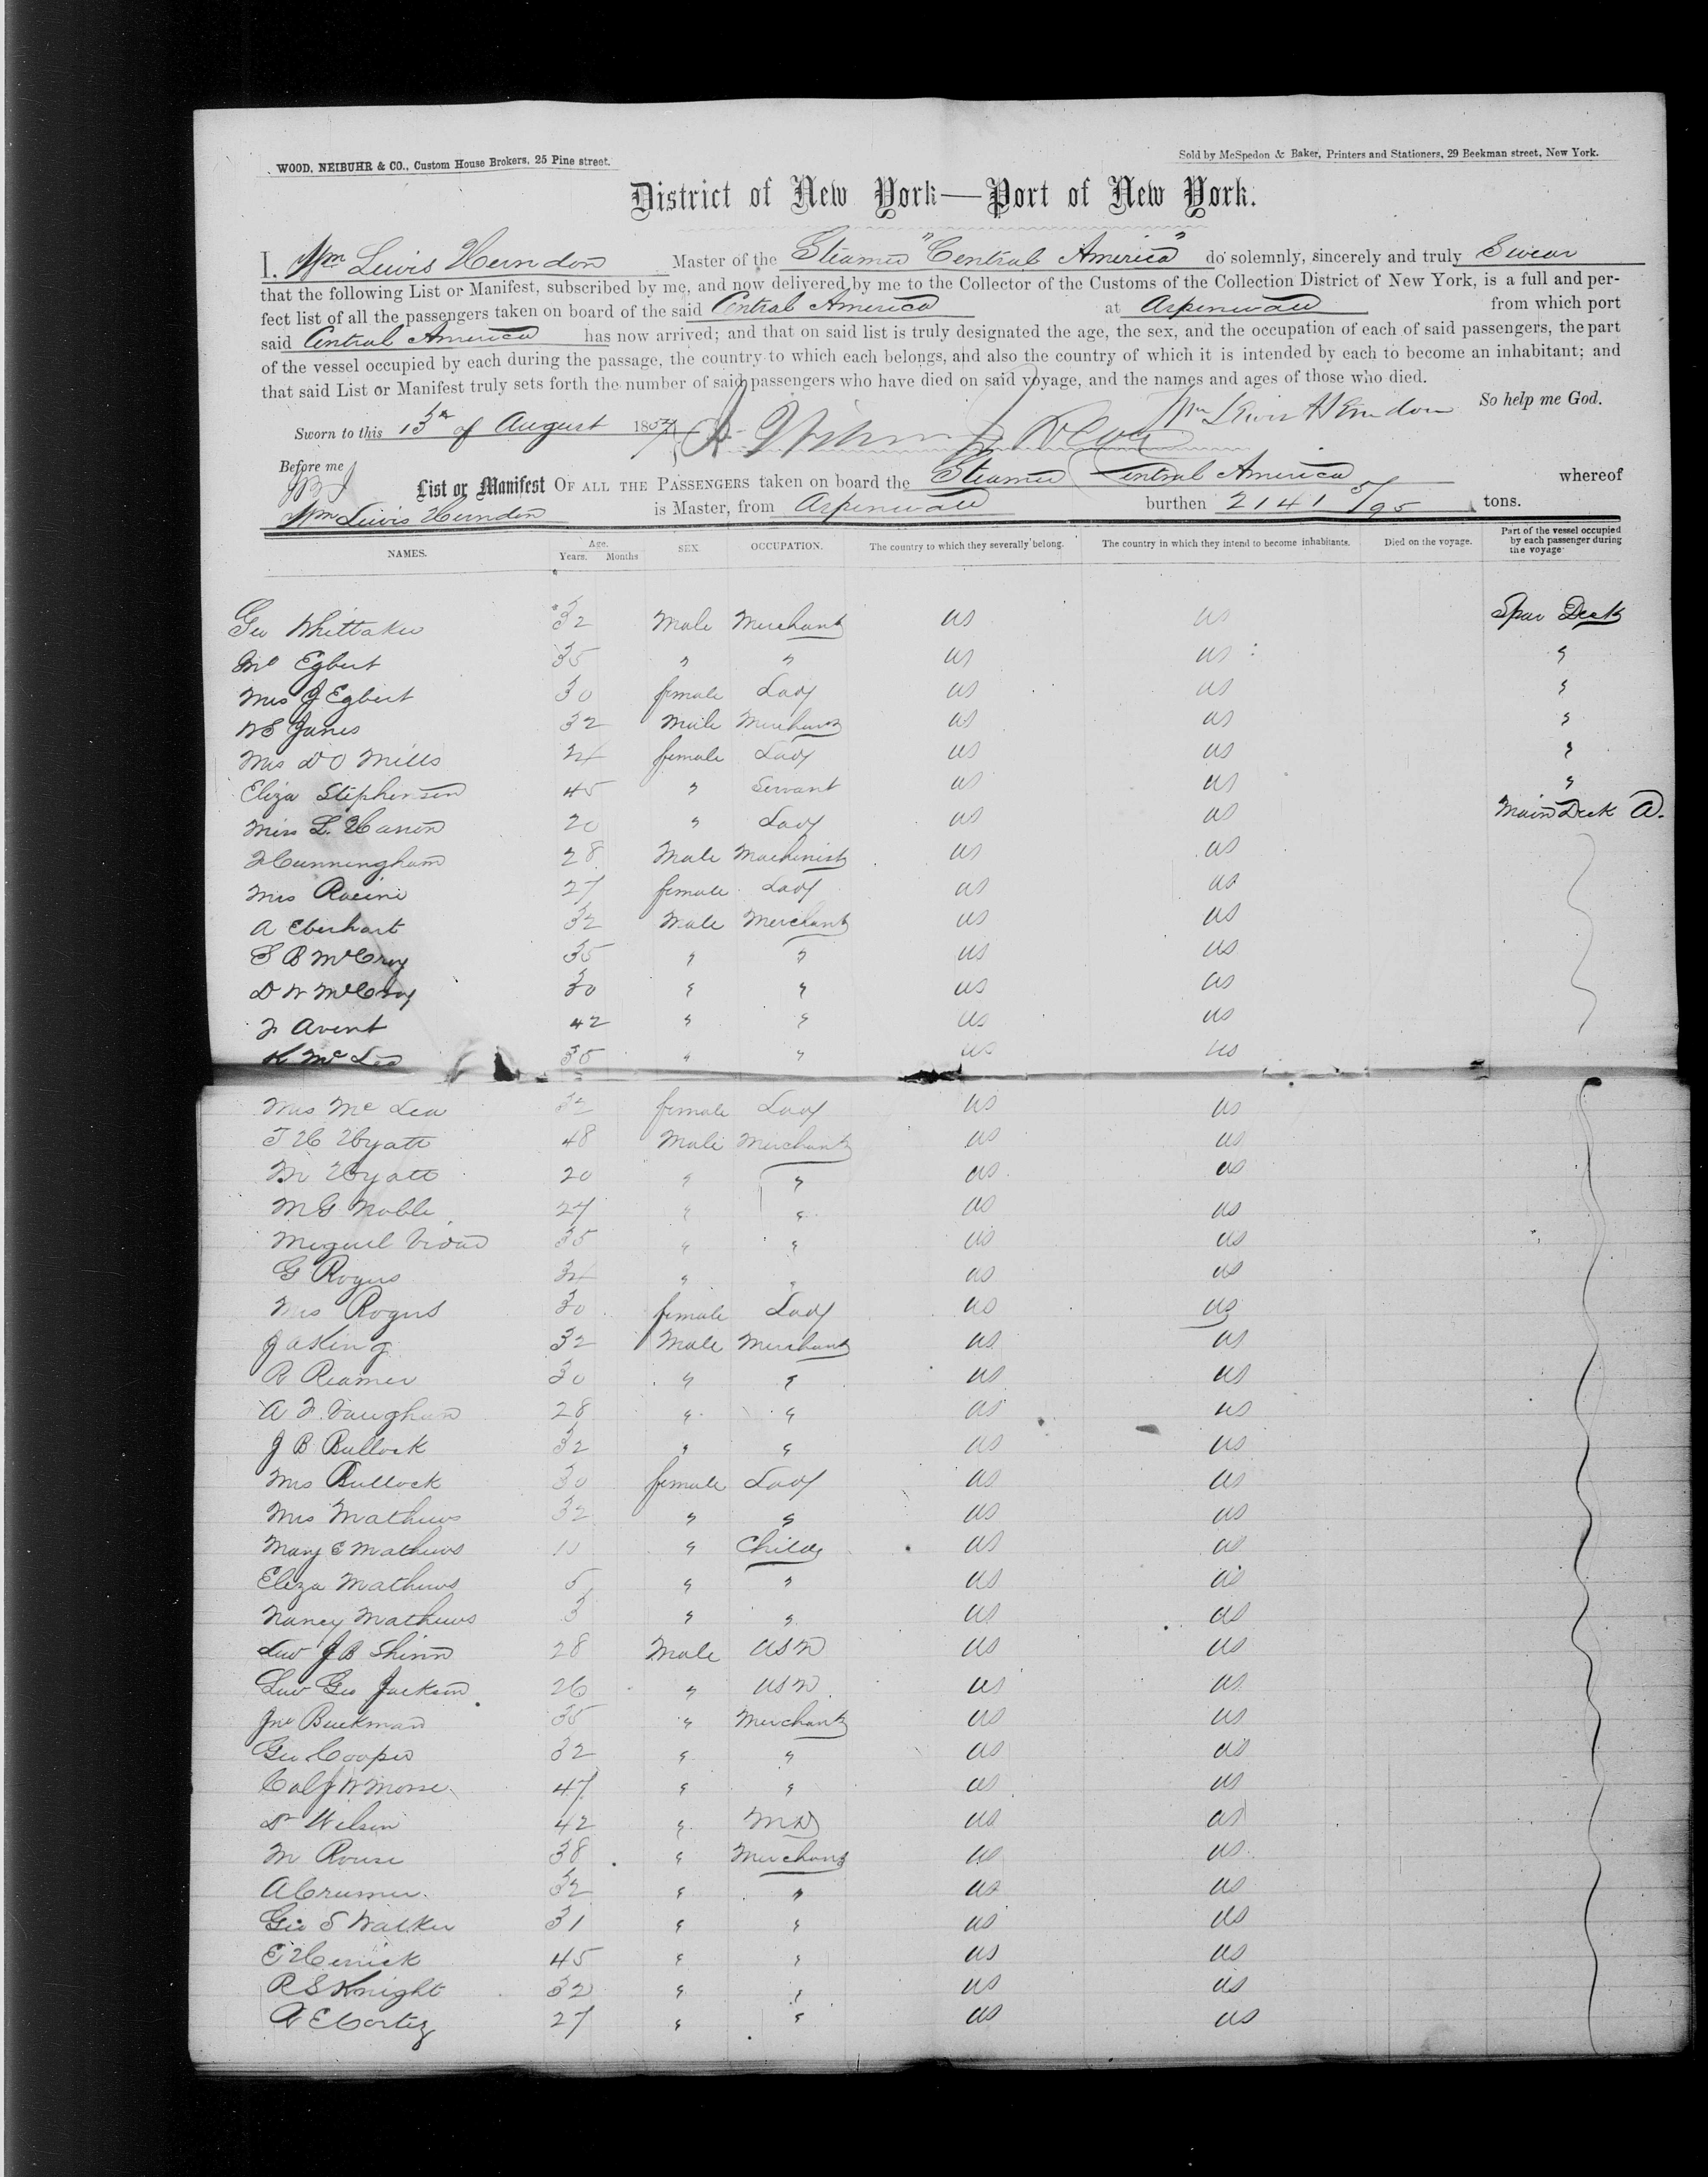 WOOD, NEIBUHR & CO., Custom House Brokers, 25 Pine street.
Sold by McSpedon & Baker, Printers and Stationers, 29 Beekman street, New York.
District of New York—Port of New York.
I, Wm Lewis Herndon Master of the Steamer "Central America" do solemnly, sincerely and truly Swear
that the following List or Manifest, subscribed by me, and now delivered by me to the Collector of the Customs of the Collection District of New York, is a full and per-
fect list of all the passengers taken on board of the said Central America at Aspinwall from which port
said Central America has now arrived; and that on said list is truly designated the age, the sex, and the occupation of each of said passengers, the part
of the vessel occupied by each during the passage, the country to which each belongs, and also the country of which it is intended by each to become an inhabitant; and
that said List or Manifest truly sets forth the number of said passengers who have died on said voyage, and the names and ages of those who died.
So help me God.
Sworn to this 13th of August 1857 Wm Lewis Herndon
Before me
List or Manifest OF ALL THE PASSENGERS taken on board the Steamer Central America whereof
Wm Lewis Herndon is Master, from Aspinwall burthen 2141 5/95 tons.
NAMES. Age. Years. Months SEX. OCCUPATION. The country to which they severally belong. The country in which they intend to become inhabitants. Died on the voyage. Part of the vessel occupied by each passenger during the voyage
Geo Whittaker 32 Male Merchant US US Spar Deck
Mr Egbert 35 " " US US "
Mrs J Egbert 30 female Lady US US "
W S Janes 32 Male Merchant US US "
Mrs D O Mills 24 female Lady US US "
Eliza Stephenson 45 " Servant US US "
Miss L. Hanson 20 " Lady US US Main Deck A.
F Cunningham 28 Male Machinist US US
Mrs Racine 27 female Lady US US
A Eberhart 32 Male Merchant US US
S B McCroy 35 " " US US
D W McCroy 30 " " US US
F Avent 42 " " US US
K Mc Lea 35 " " US US
Mrs Mc Lea 32 female Lady US US
T H Hyatt 48 Male Merchant US US
M Hyatt 20 " " US US
M G Noble 27 " " US US
Miguel 35 " " US US
G Rogers 34 " " US US
Mrs Rogers 30 female Lady US US
J A King 32 Male Merchant US US
R Reamer 30 " " US US
A F Vaughan 28 " " US US
J B Bullock 32 " " US US
Mrs Bullock 30 female Lady US US
Mrs Mathews 32 " " US US
Mary E Mathews 10 " Child US US
Eliza Mathews 5 " " US US
Nancy Mathews 3 " " US US
J B Shinn 28 Male USN US US
Geo Jackson 26 " USN US US
Jno Buckman 35 " Merchant US US
Geo Cooper 32 " " US US
Col J W Morse 47 " " US US
Dr Wilson 42 " MD US US
M Rouse 38 " Merchant US US
A Crumer 32 " " US US
Geo S Walker 31 " " US US
E Herrick 45 " " US US
R S Knight 32 " " US US
E Cortez 27 " " US US